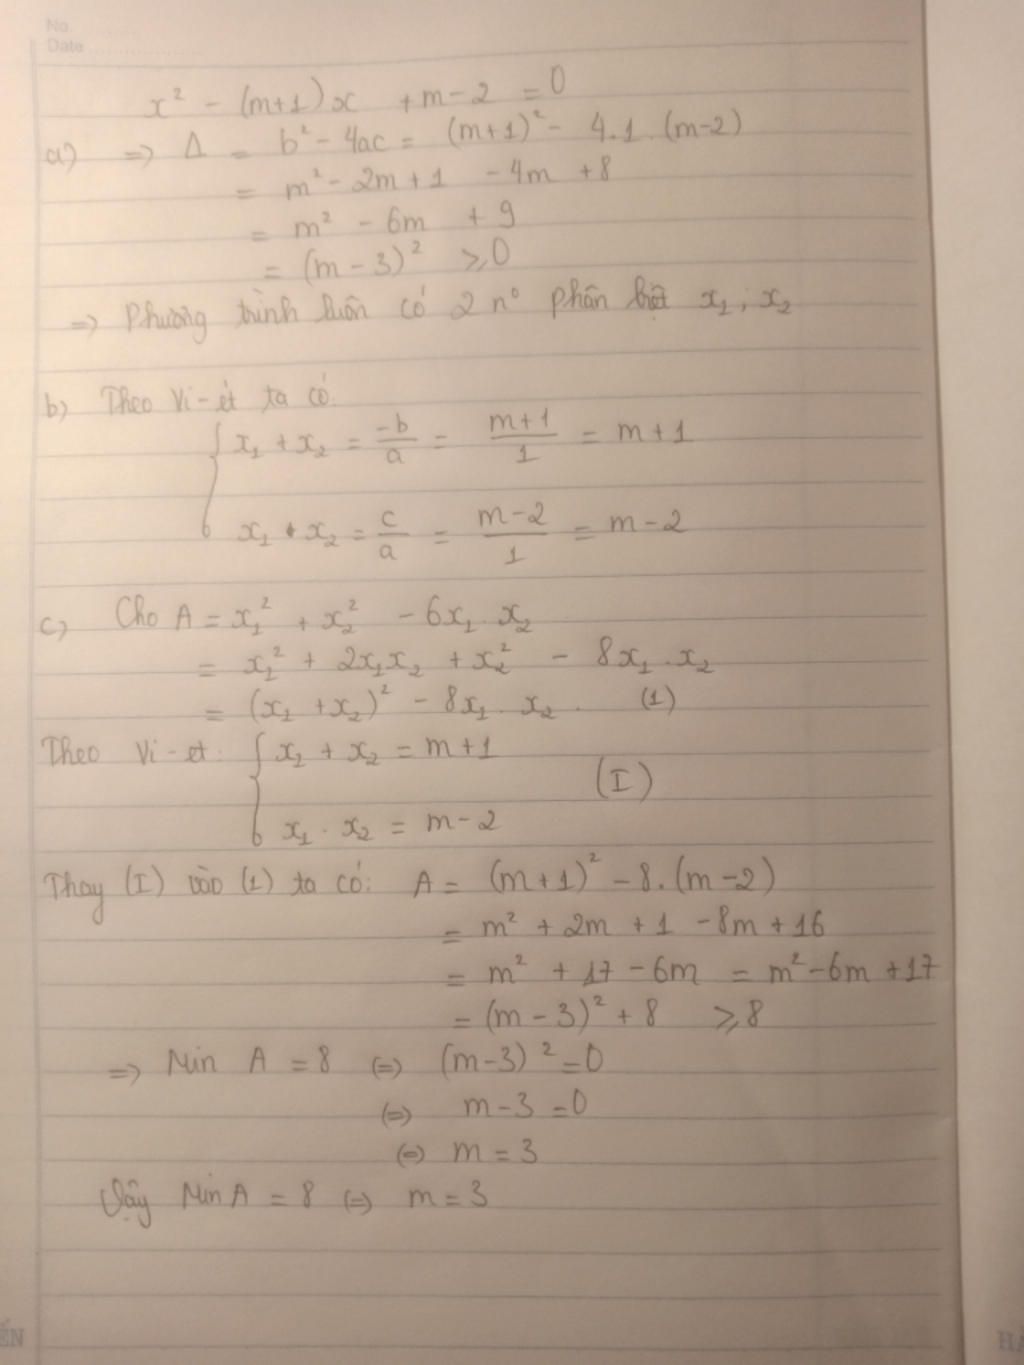 No.
Date
x² - (m+1)x + m - 2 = 0
a) => Δ = b² - 4ac = (m+1)² - 4.1.(m-2)
= m² - 2m + 1 - 4m + 8
= m² - 6m + 9
= (m - 3)² ⩾ 0
=> Phương trình luôn có 2 n° phân biệt x₁; x₂
b) Theo Vi-ét ta có:
{ x₁ + x₂ = -b/a = (m+1)/1 = m + 1
x₁ . x₂ = c/a = (m-2)/1 = m - 2
c) Cho A = x₁² + x₂² - 6x₁ . x₂
= x₁² + 2x₁x₂ + x₂² - 8x₁ . x₂
= (x₁ + x₂)² - 8x₁ . x₂ . (1)
Theo Vi-et: { x₁ + x₂ = m + 1
(I)
x₁ . x₂ = m - 2
Thay (I) vào (1) ta có: A = (m+1)² - 8.(m-2)
= m² + 2m + 1 - 8m + 16
= m² + 17 - 6m = m² - 6m + 17
= (m - 3)² + 8 ⩾ 8
=> Min A = 8 (=) (m-3)² = 0
(=) m - 3 = 0
(=) m = 3
Vậy Min A = 8 (=) m = 3
ẾN
HẢ